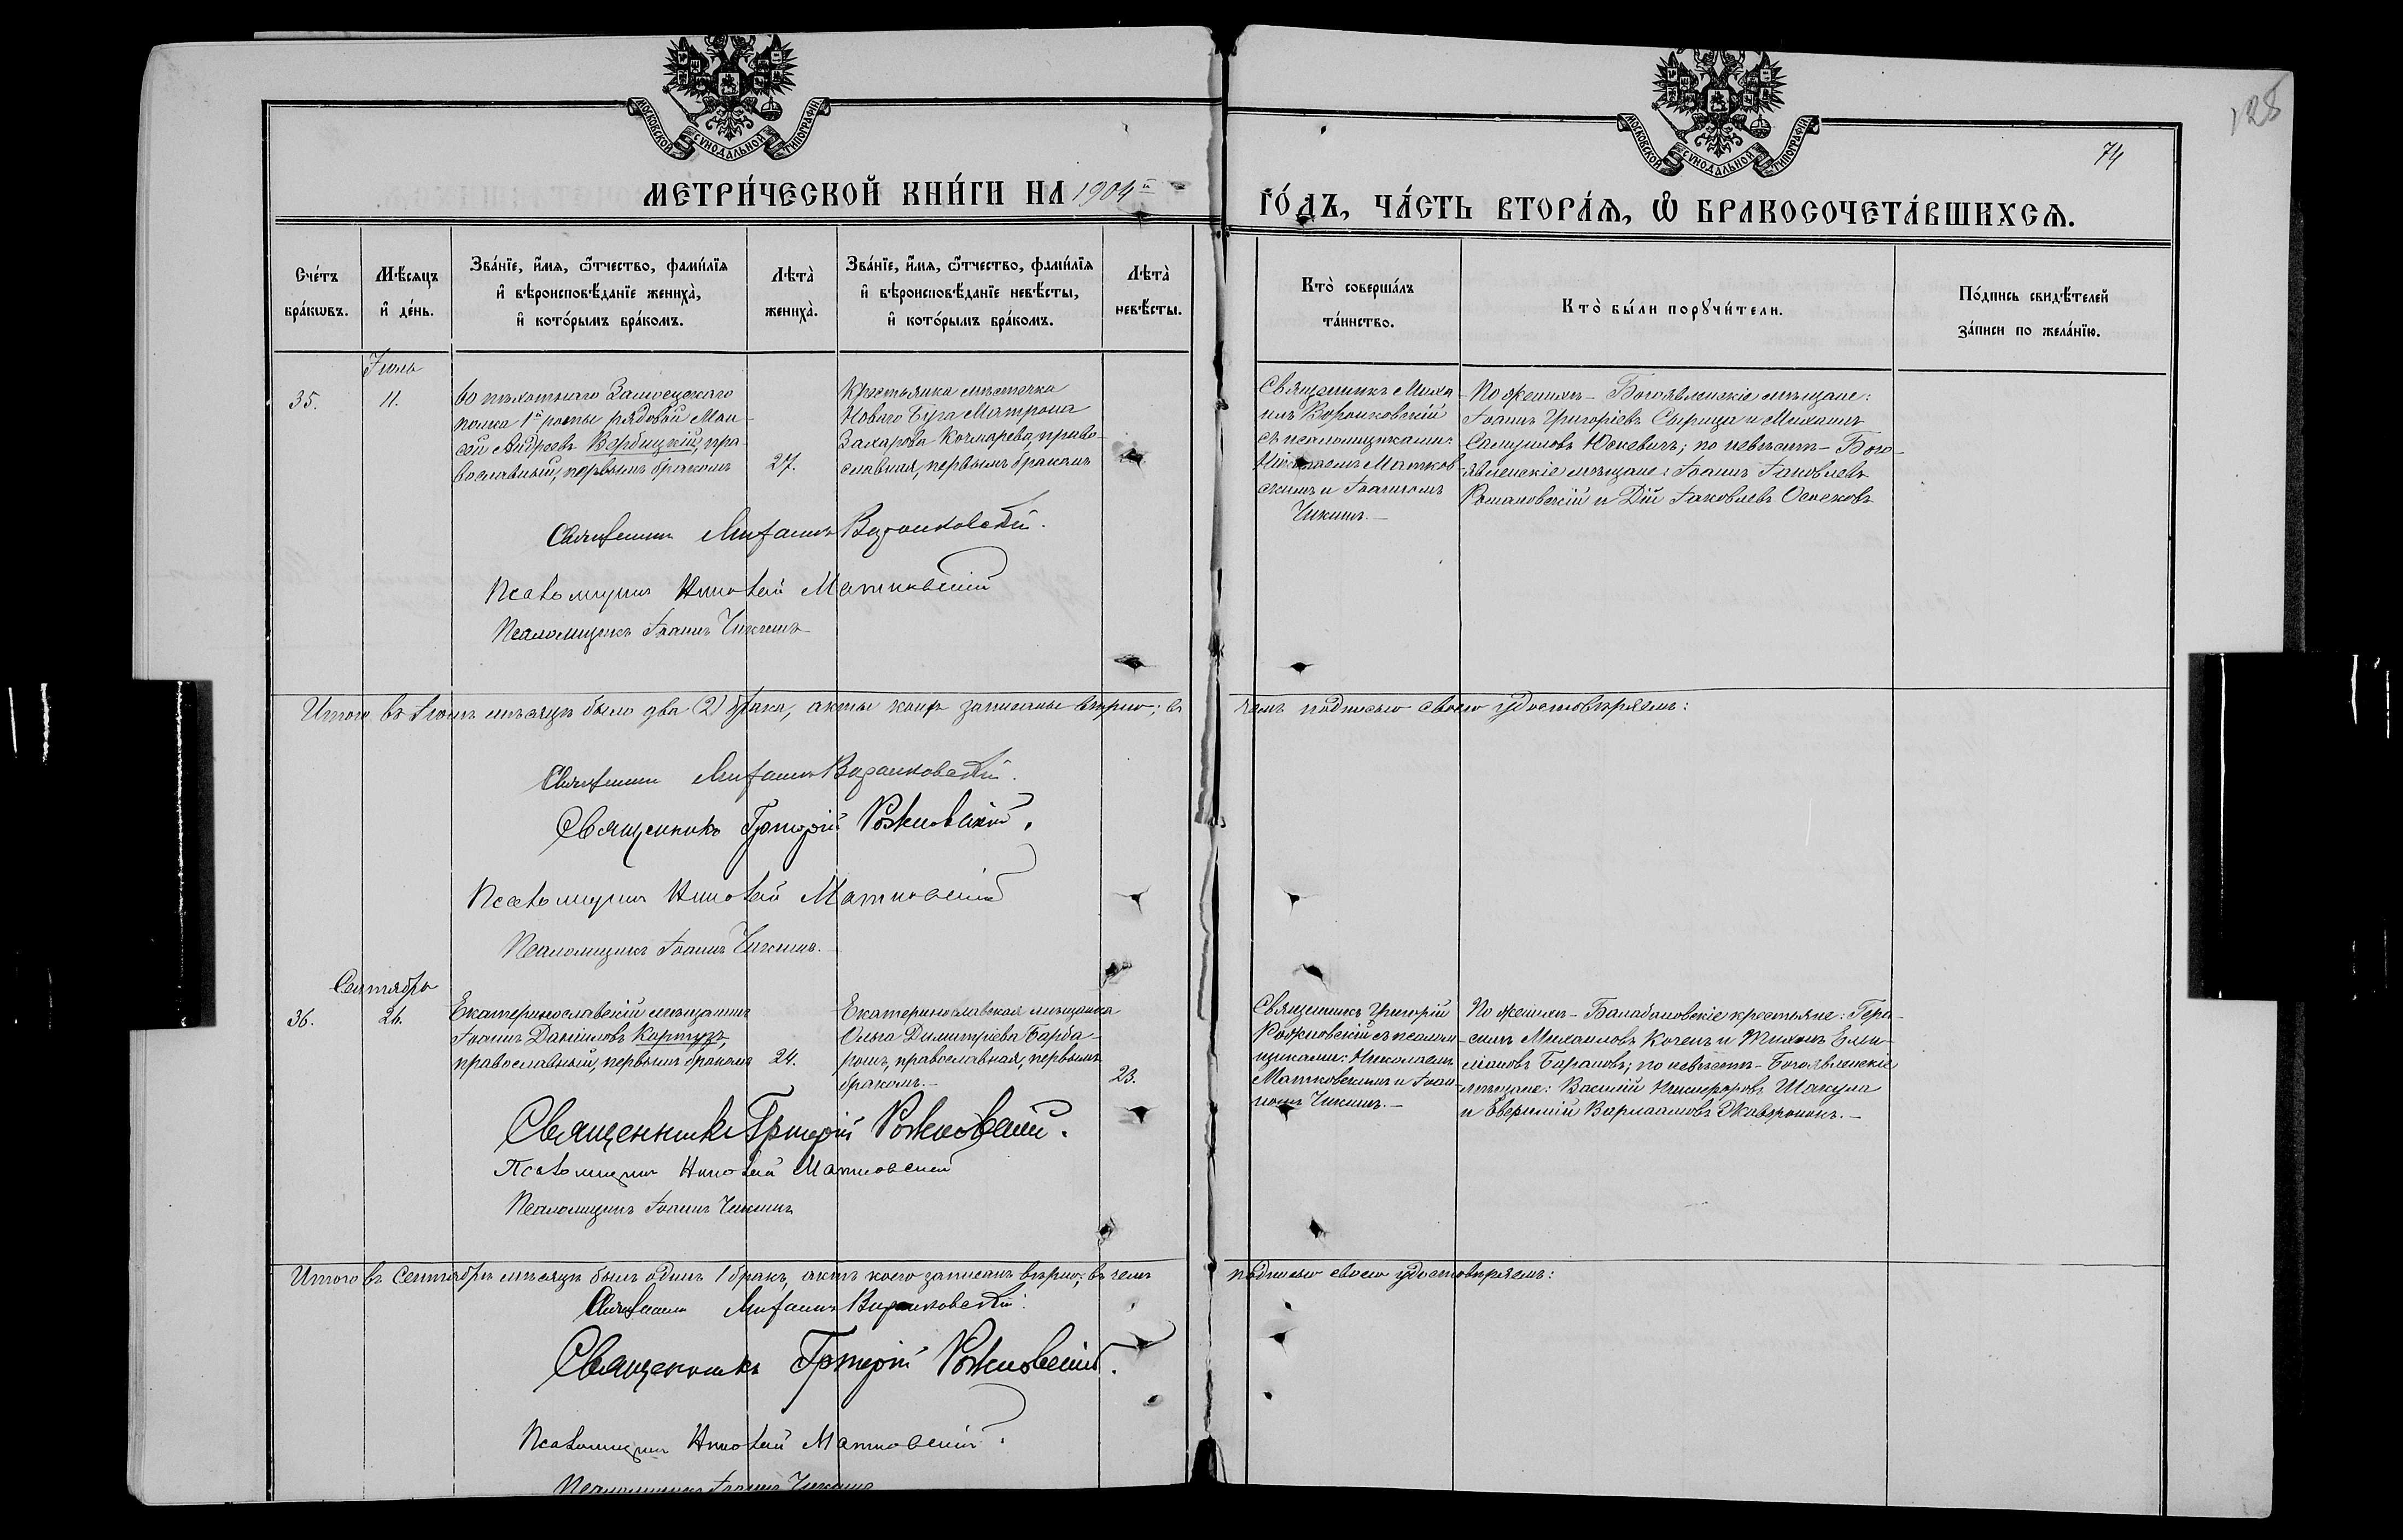 128
74
МОСКОВСКОЙ СѴНОДАЛЬНОЙ ТИПОГРАФІИ
МОСКОВСКОЙ СѴНОДАЛЬНОЙ ТИПОГРАФІИ
МЕТРИ́ЧЕСКОЙ КНИ́ГИ НА 1904й
ГО́ДЪ, ЧА́СТЬ ВТОРА́Ѧ, Ѽ БРАКОСОЧЕТА́ВШИХСѦ.
Сче́тъ бра́кѡвъ.
Мѣ́сяцъ и҆ де́нь.
Зва́нїе, и҆́мя, ѻ҆́тчество, фами́лїя
и҆ вѣроисповѣ́данїе жениха̀,
и҆ кото́рымъ бра́комъ.
Лѣта̀ жениха̀.
Зва́нїе, и҆́мя, ѻ҆́тчество, фами́лїя
и҆ вѣроисповѣ́данїе невѣ́сты,
и҆ кото́рымъ бра́комъ.
Лѣта̀ невѣ́сты.
Кто̀ соверша́лъ та́инство.
Кто̀ бы́ли порꙋчи́тели.
По́дпись свидѣ́телей
за́писи по жела́нїю.
Іюль
35.
11.
60 пѣхотнаго Замосцскаго
полка 1й роты рядовой Мои-
сей Андреевъ Вербицкій, пра-
вославный, первымъ бракомъ
27.
Крестьянка мѣстечка
Новаго Буга Матрона
Захарова Кочмарева, право-
славная, первымъ бракомъ
Священникъ Миха
илъ Воронковскій
съ псаломщиками:
Николаемъ Матков
скимъ и Іоанномъ
Чикинъ.
По женихѣ – Богоявленскіе мѣщане:
Іоаннъ Григоріевъ Сырица и Михаилъ
Самуиловъ Юскевичъ; по невѣстѣ – Бого-
явленскіе мѣщане: Іоаннъ Іаковлевъ
Романовскій и Дій Іаковлевъ Осисковъ
Священникъ Михаилъ Воронковскій.
Псаломщикъ Николай Матковскій
Псаломщикъ Іоаннъ Чикинъ
Итого въ Іюлѣ мѣсяцѣ было два (2) брака, акты коихъ записаны вѣрно; въ
чемъ подписью своею удостовѣряемъ:
Священникъ Михаилъ Воронковскій.
Священникъ Григорій Рожновскій.
Псаломщикъ Николай Матковскій
Псаломщикъ Іоаннъ Чикинъ.
Сентябрь
36.
26.
Екатеринославскій мѣщанинъ
Іоаннъ Даніиловъ Картузъ,
православный, первымъ бракомъ
24.
Екатеринославская мѣщанка
Ольга Димитріева Барба-
рошъ, православная, первымъ
бракомъ.
23.
Священникъ Григорій
Рожновскій съ псалом-
щиками: Николаемъ
Матковскимъ и Іоан-
номъ Чикинъ.
По женихѣ – Балабановскіе крестьяне: Гера-
симъ Михаиловъ Коченъ и Тихонъ Еми-
ліановъ Барановъ; по невѣстѣ – Богоявленскіе
мѣщане: Василій Никифоровъ Шакула
и Евфимій Варлаамовъ Жаворонокъ.
Священникъ Григорій Рожновскій.
Псаломщикъ Николай Матковскій
Псаломщикъ Іоаннъ Чикинъ
Итого въ Сентябрѣ мѣсяцѣ былъ одинъ 1 бракъ, актъ коего записанъ вѣрно; въ чемъ
подписью своею удостовѣряемъ:
Священникъ Михаилъ Воронковскій.
Священникъ Григорій Рожновскій.
Псаломщикъ Николай Матковскій.
Псаломщикъ Іоаннъ Чикинъ